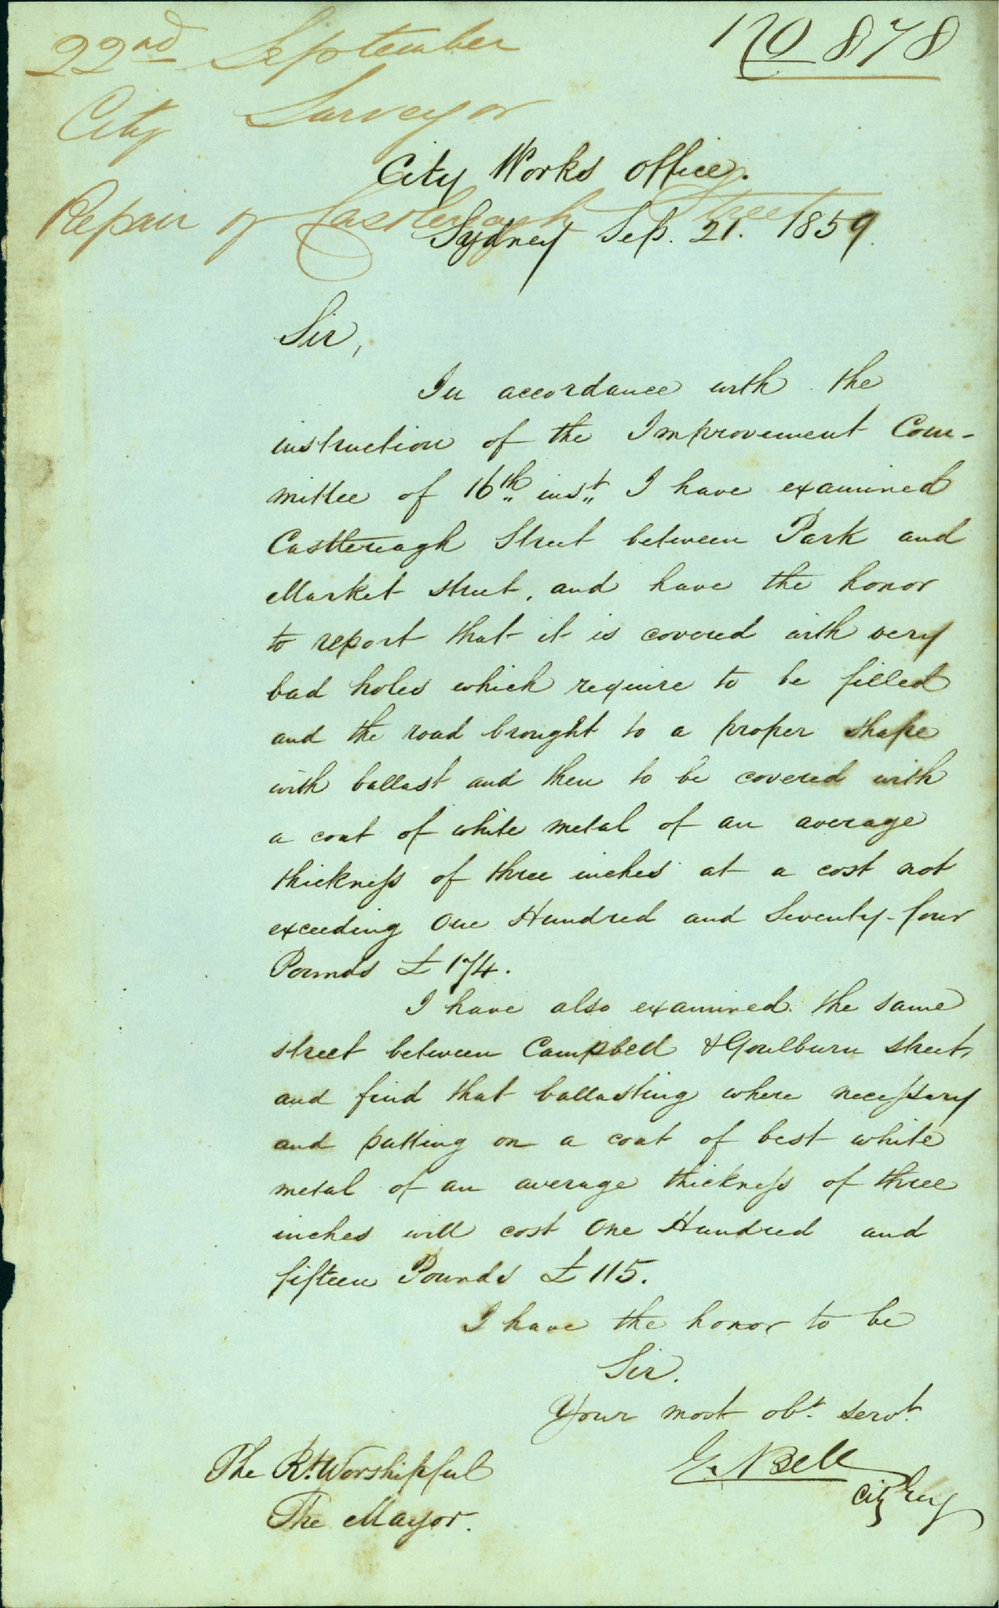 22nd September
No 878
City Surveyor
City Works Office.
Repair of Castlereagh Street
Sydney Sep. 21. 1859.
Sir,
In accordance with the
instruction of the Improvement Com-
mittee of 16th inst I have examined
Castlereagh Street between Park and
Market street, and have the honor
to report that it is covered with very
bad holes which require to be filled
and the road brought to a proper shape
with ballast and then to be covered with
a coat of white metal of an average
thickness of three inches at a cost not
exceeding One Hundred and Seventy-four
Pounds £174.
I have also examined the same
street between Campbell & Goulburn street,
and find that ballasting where necessary
and putting on a coat of best white
metal of an average thickness of three
inches will cost One Hundred and
fifteen Pounds £115.
I have the honor to be
Sir.
Your most obt. servt.
The Rt Worshipful
E. Bell
The Mayor.
City